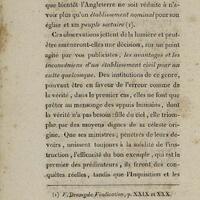 que bientôt l'Angleterre ne soit réduite à n'a-
voir plus qu'un établissement nominal pour son
église et un peuple sectaire (1).
Ces observations jettent de la lumière et peut-
être amèneront-elles une décision, sur un point
agité par vos publicistes, les avantages et les
inconvéniens d'un établissement civil pour un
culte quelconque. Des institutions de ce genre,
peuvent être en faveur de l'erreur comme de la
vérité, dans le premier cas, elles ne font que
prêter au mensonge des appuis humains, dont
la vérité n'a pas besoin : fille du ciel, elle triom-
phe par des moyens dignes de sa céleste ori-
gine. Que ses ministres, pénétrés de leurs de-
voirs, unissent toujours à la solidité de l'ins-
truction, l'efficacité du bon exemple, qui est le
premier des prédicateurs, ils feront des con-
quêtes réelles, tandis que l'Inquisition et les
(1) V. p. XXIX et XXX.